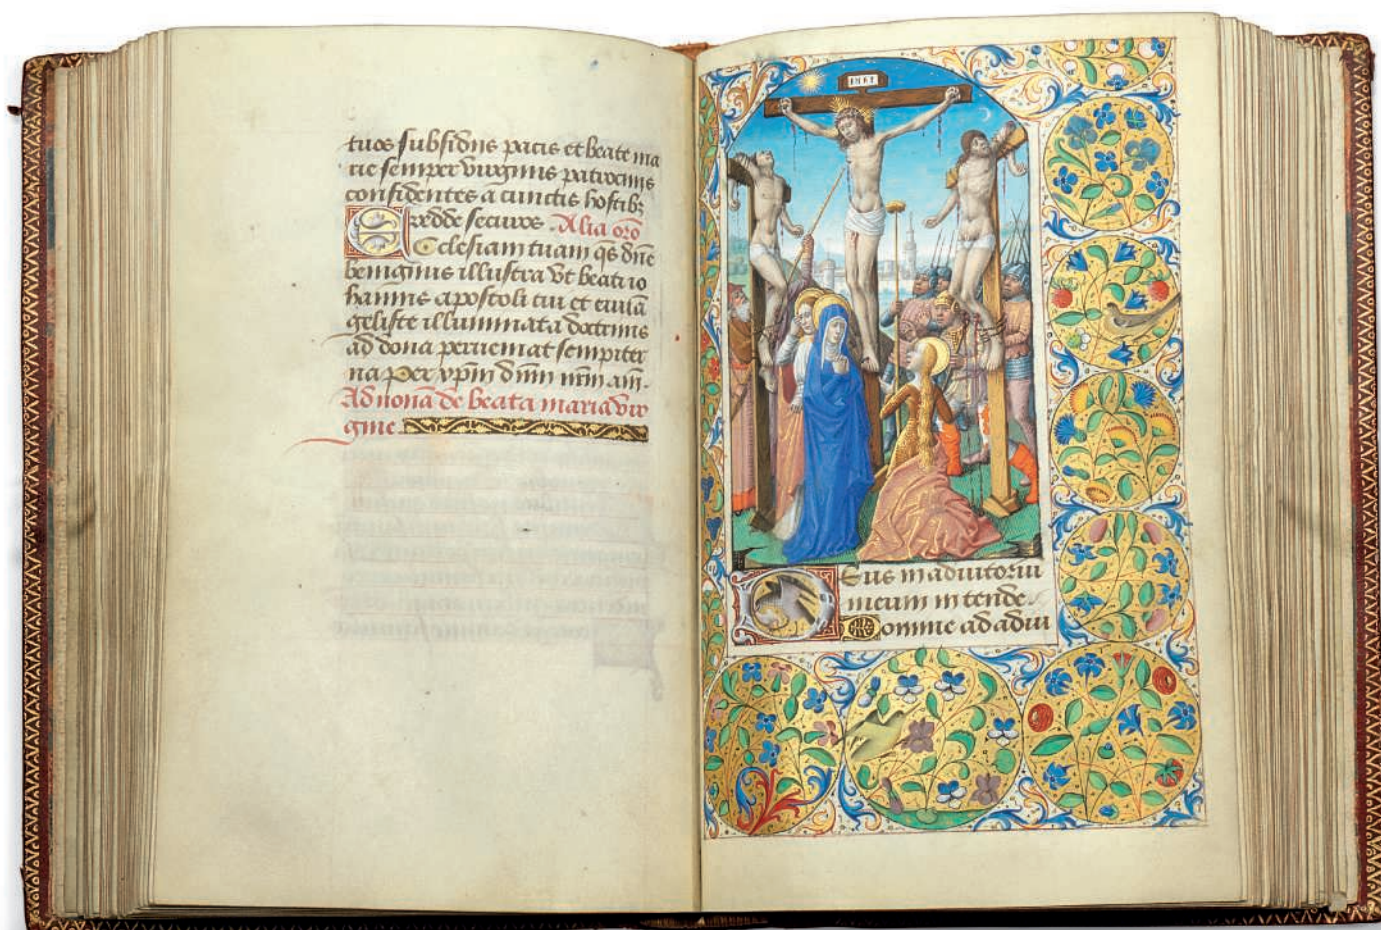 tuos subsidiis pacis et beate ma
rie semper virginis patrocinis
confidentes a cunctis hostibꝫ
redde securos. Alia orō
Eclesiam tuam q̄s dn̄e
benignus illustra vt beati io
hannis apostoli tui et euuā
geliste illuminata doctrinis
ad dona perueniat sempiter
na Per xp̄m dn̄m nr̄m am̄.
Ad nonā de beata maria vir
gine.
INRI
Deus in adiutoriū
meum intende.
Domine ad adiu